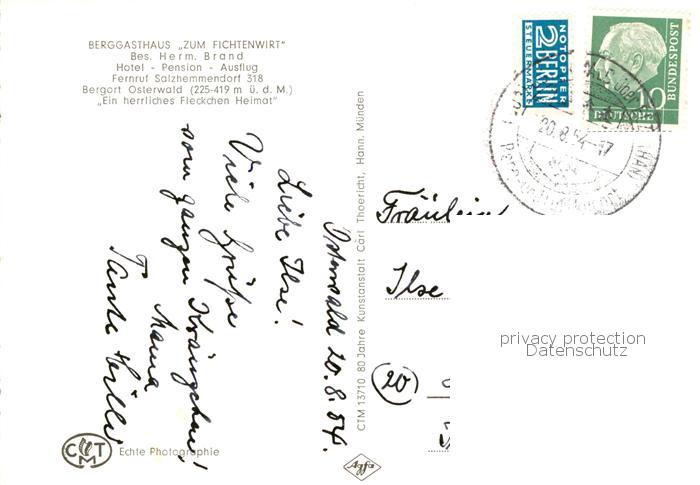 BERGGASTHAUS „ZUM FICHTENWIRT"
Bes. Herm. Brand
Hotel - Pension - Ausflug
Fernruf Salzhemmendorf 318
Bergort Osterwald (225-419 m ü. d. M.)
„Ein herrliches Fleckchen Heimat"
Osterwald 20.8.54.
Liebe Ilse!
Viele Grüße
vom ganzen Kränzchen!
Mama
Tante
CTM
Echte Photographie
CTM 13710 80 Jahre Kunstanstalt Carl Thoericht, Hann. Münden
Agfa
NOTOPFER
2 BERLIN
STEUERMARKE
10
DEUTSCHE
BUNDESPOST
20.8.54.-17
Fräulein
Ilse
20
privacy protection
Datenschutz